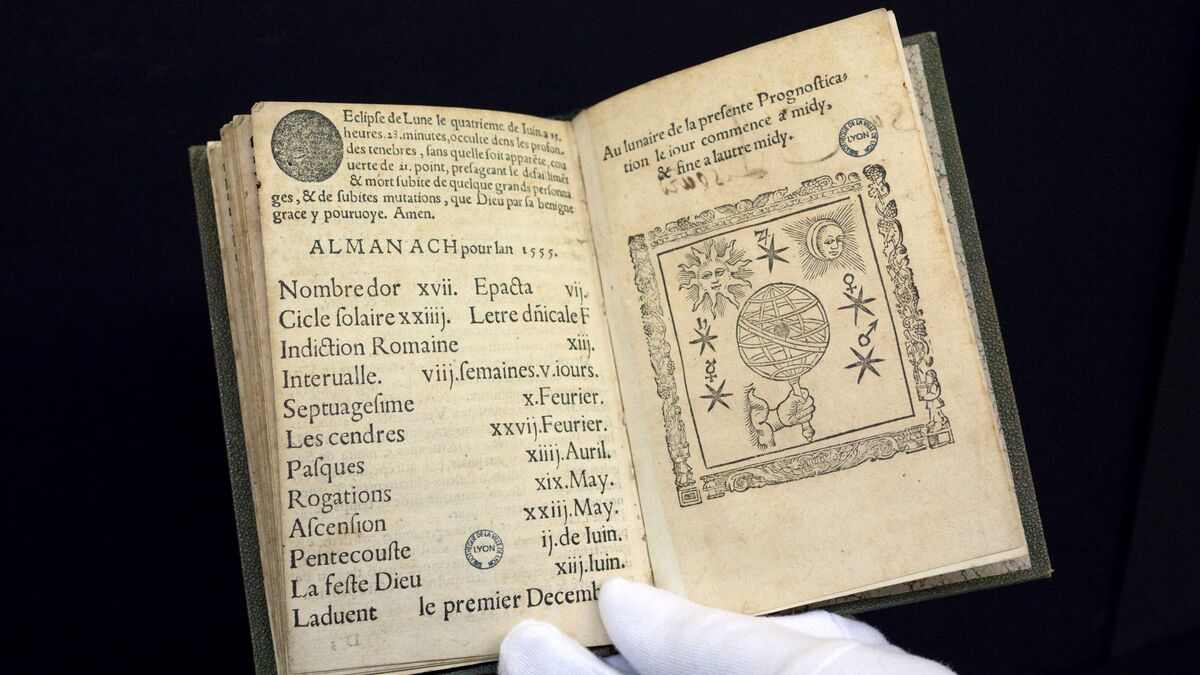 Eclipſe de Lune le quatrieme de Iuin.a 15.
heures.28.minutes, occulte dens les profon.
des tenebres, ſans quelle ſoit apparẽte, cou
uerte de 21. point, preſageant le defaillimẽt
& mort ſubite de quelque grands perſonna
ges, & de ſubites mutations, que Dieu par ſa benigne
grace y pouruoye. Amen.
ALMANACH pour lan 1555.
Nombre dor xvii. Epacta vij.
Cicle ſolaire xxiiij. Letre dñicale F
Indiction Romaine xiij.
Interualle. viij.ſemaines.v.iours.
Septuageſime x.Feurier.
Les cendres xxvij.Feurier.
Paſques xiiij.Auril.
Rogations xix.May.
Aſcenſion xxiij.May.
Pentecouſte ij.de Iuin.
La feſte Dieu xiij.Iuin.
Laduent le premier Decemb
BIBLIOTHEQUE DE LA VILLE DE LYON
Au lunaire de la preſente Prognoſtica-
tion le iour commence a midy,
& fine a lautre midy.
BIBLIOTHEQUE DE LA VILLE DE LYON